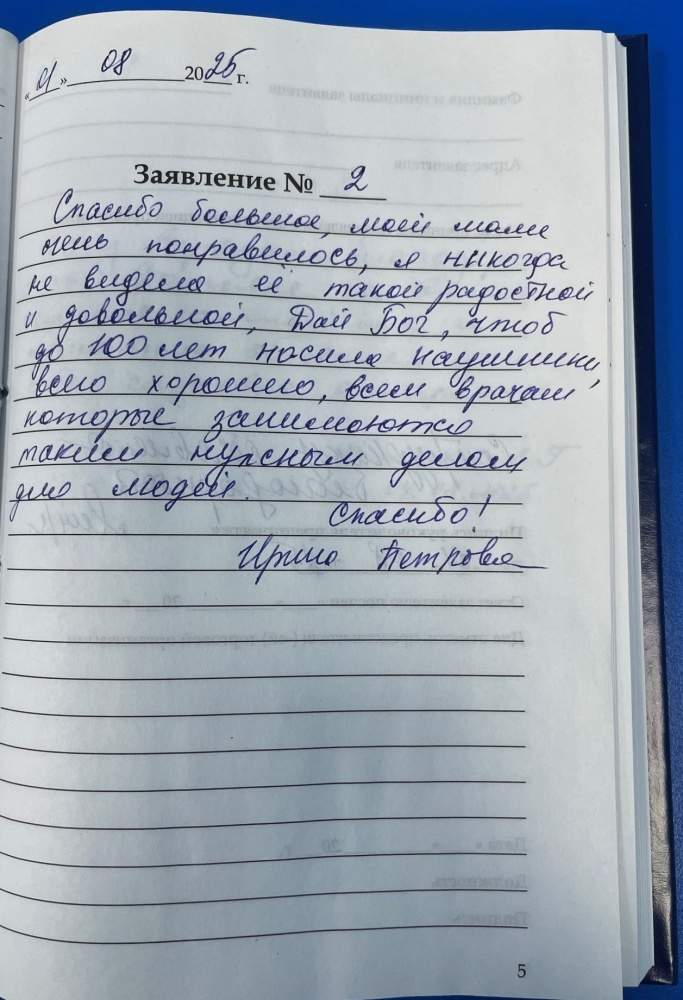 «01» 08 2025 г.
Заявление № 2
Спасибо большое, моей маме
очень понравилось, я никогда
не видела её такой радостной
и довольной, Дай Бог, чтоб
до 100 лет носила наушники,
всего хорошего, всем врачам
которые занимаются
таким нужным делом
для людей.
Спасибо!
Ирина Петровна
5